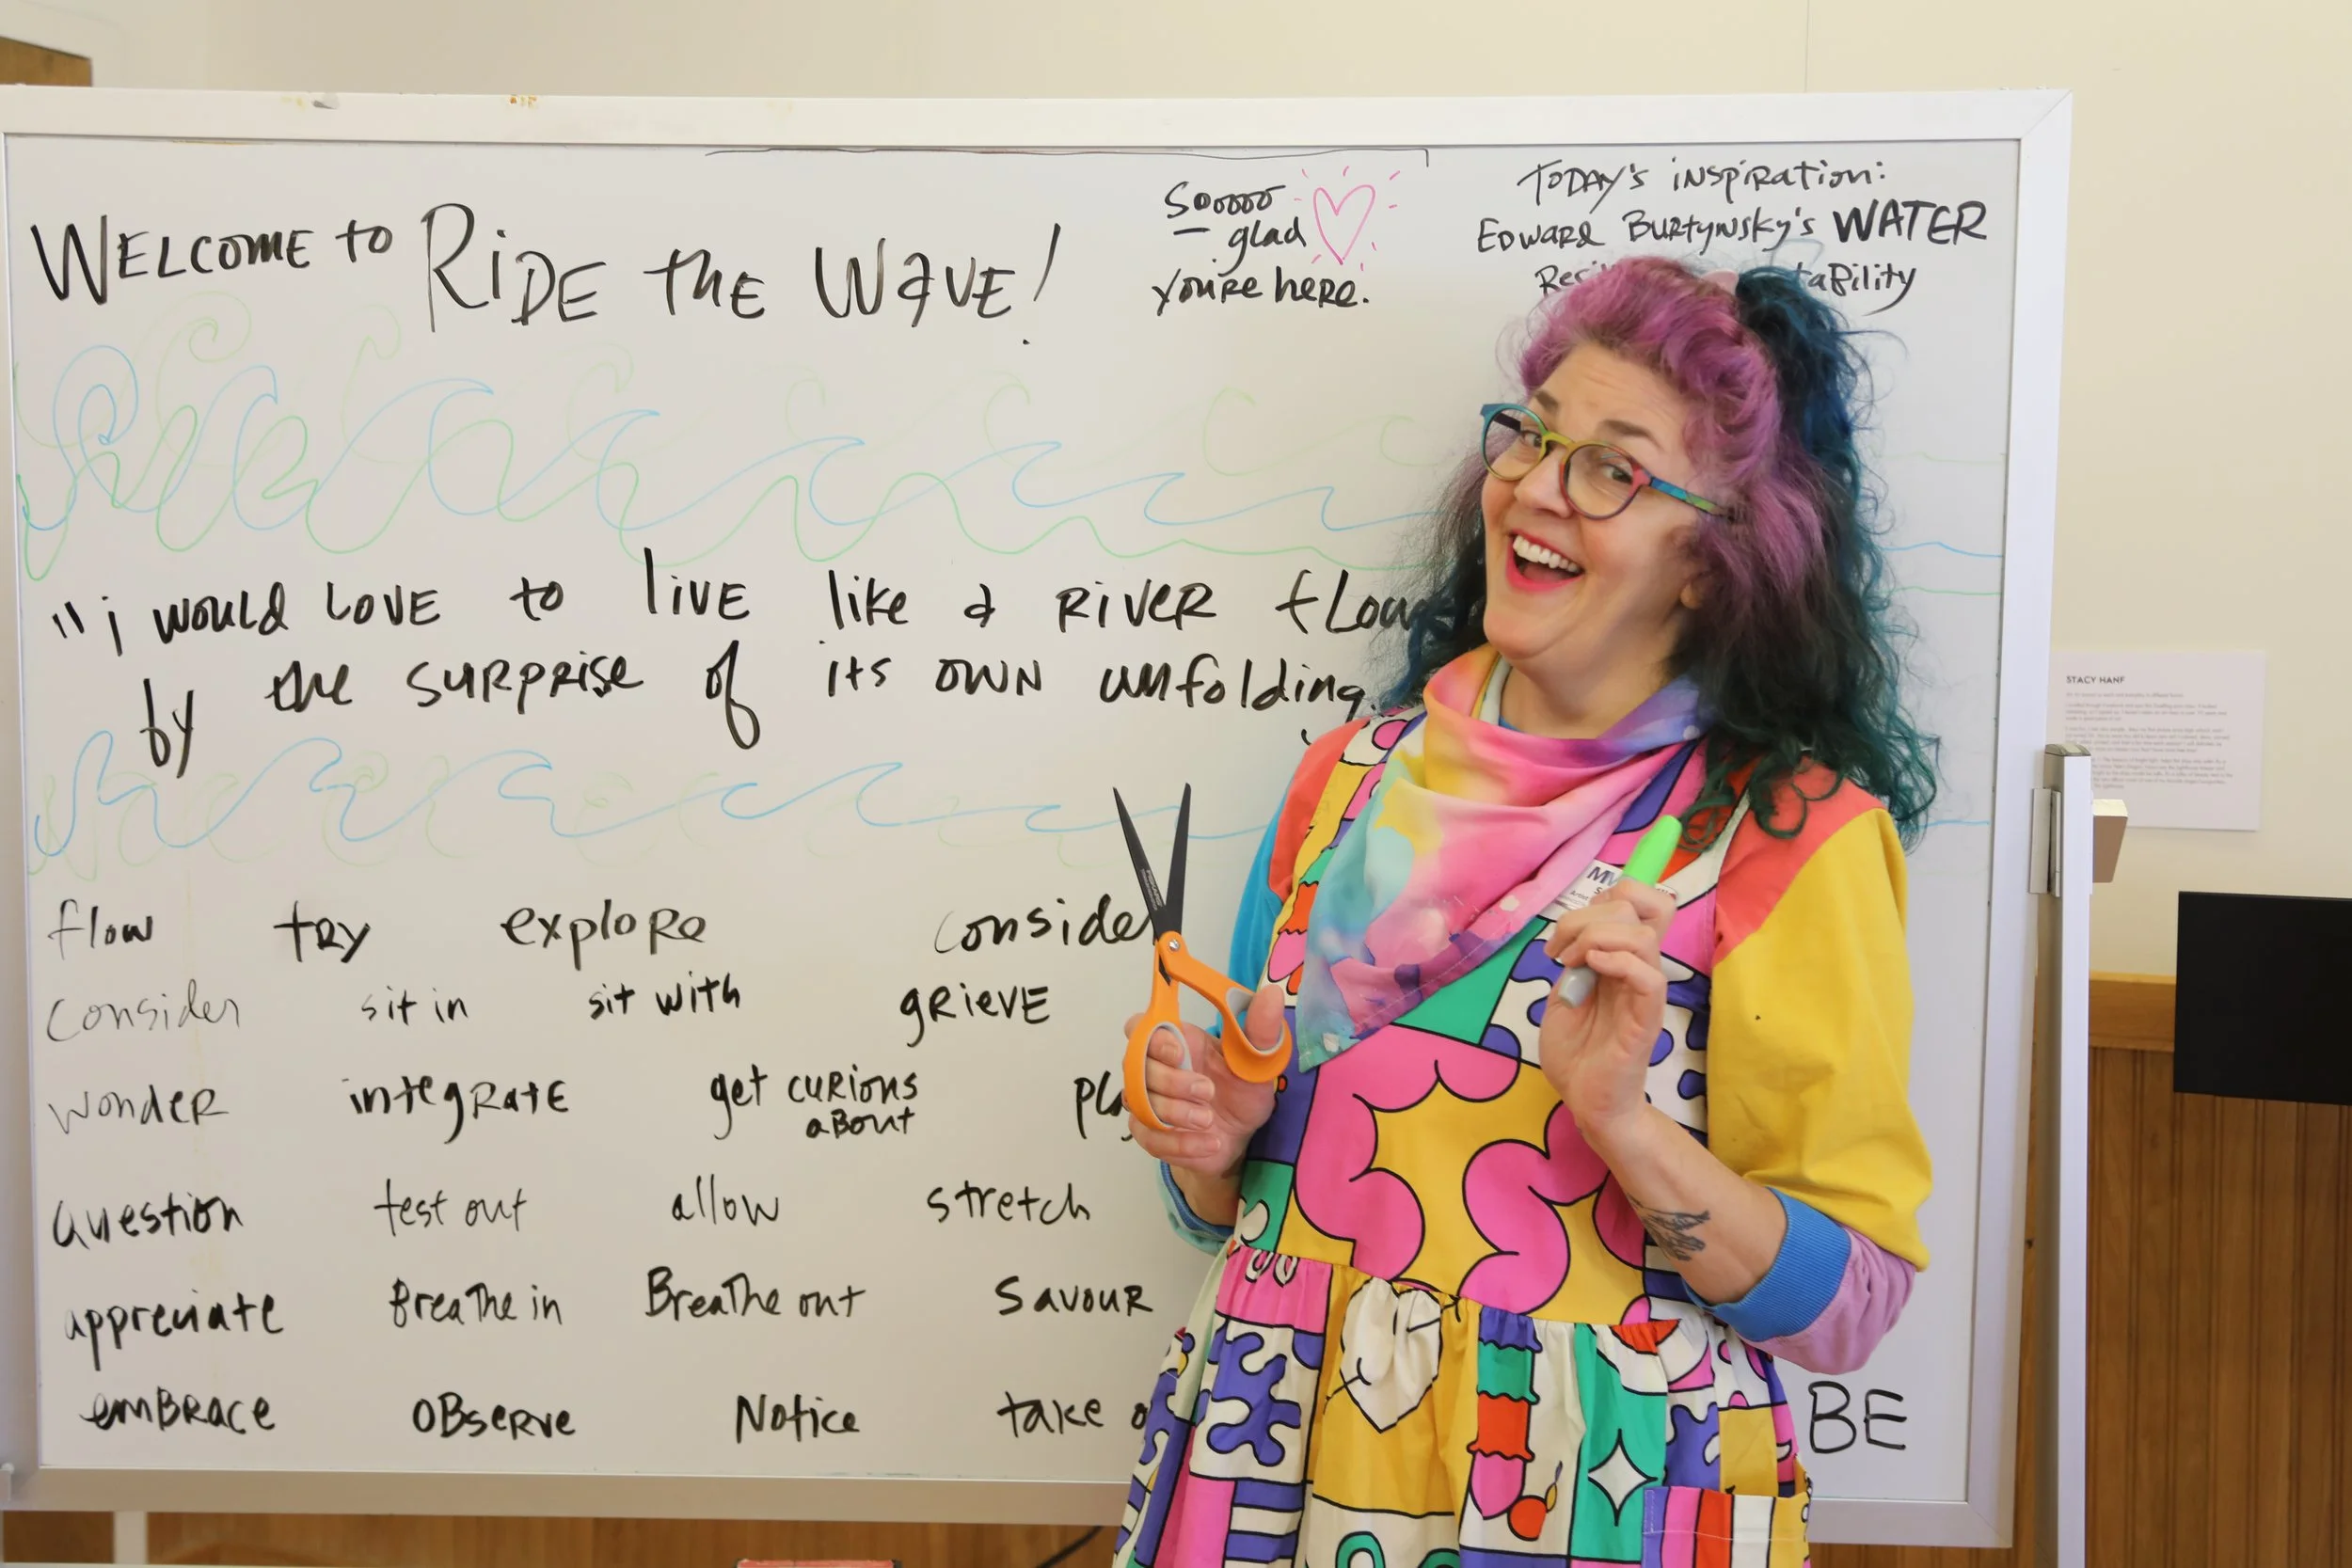 WELCOME to RiDE the WAVE!
Sooooo
glad
you're here.
TODAY's iNspiRation:
EDWARD BURTYNSKY's WATER
Resi
taBility
"i would LOVE to liVE like a RiVER flow
by the suRpRise of its OWN unfolding.
flow tRy exploRe conside
consider sit in sit with gRieVE
wondeR integRatE get cuRious about pla
question test out allow stretch
appreciate BreaThe in BreaThe out SavouR
emBRace oBseRve Notice take o
BE
STACY HANF
MV